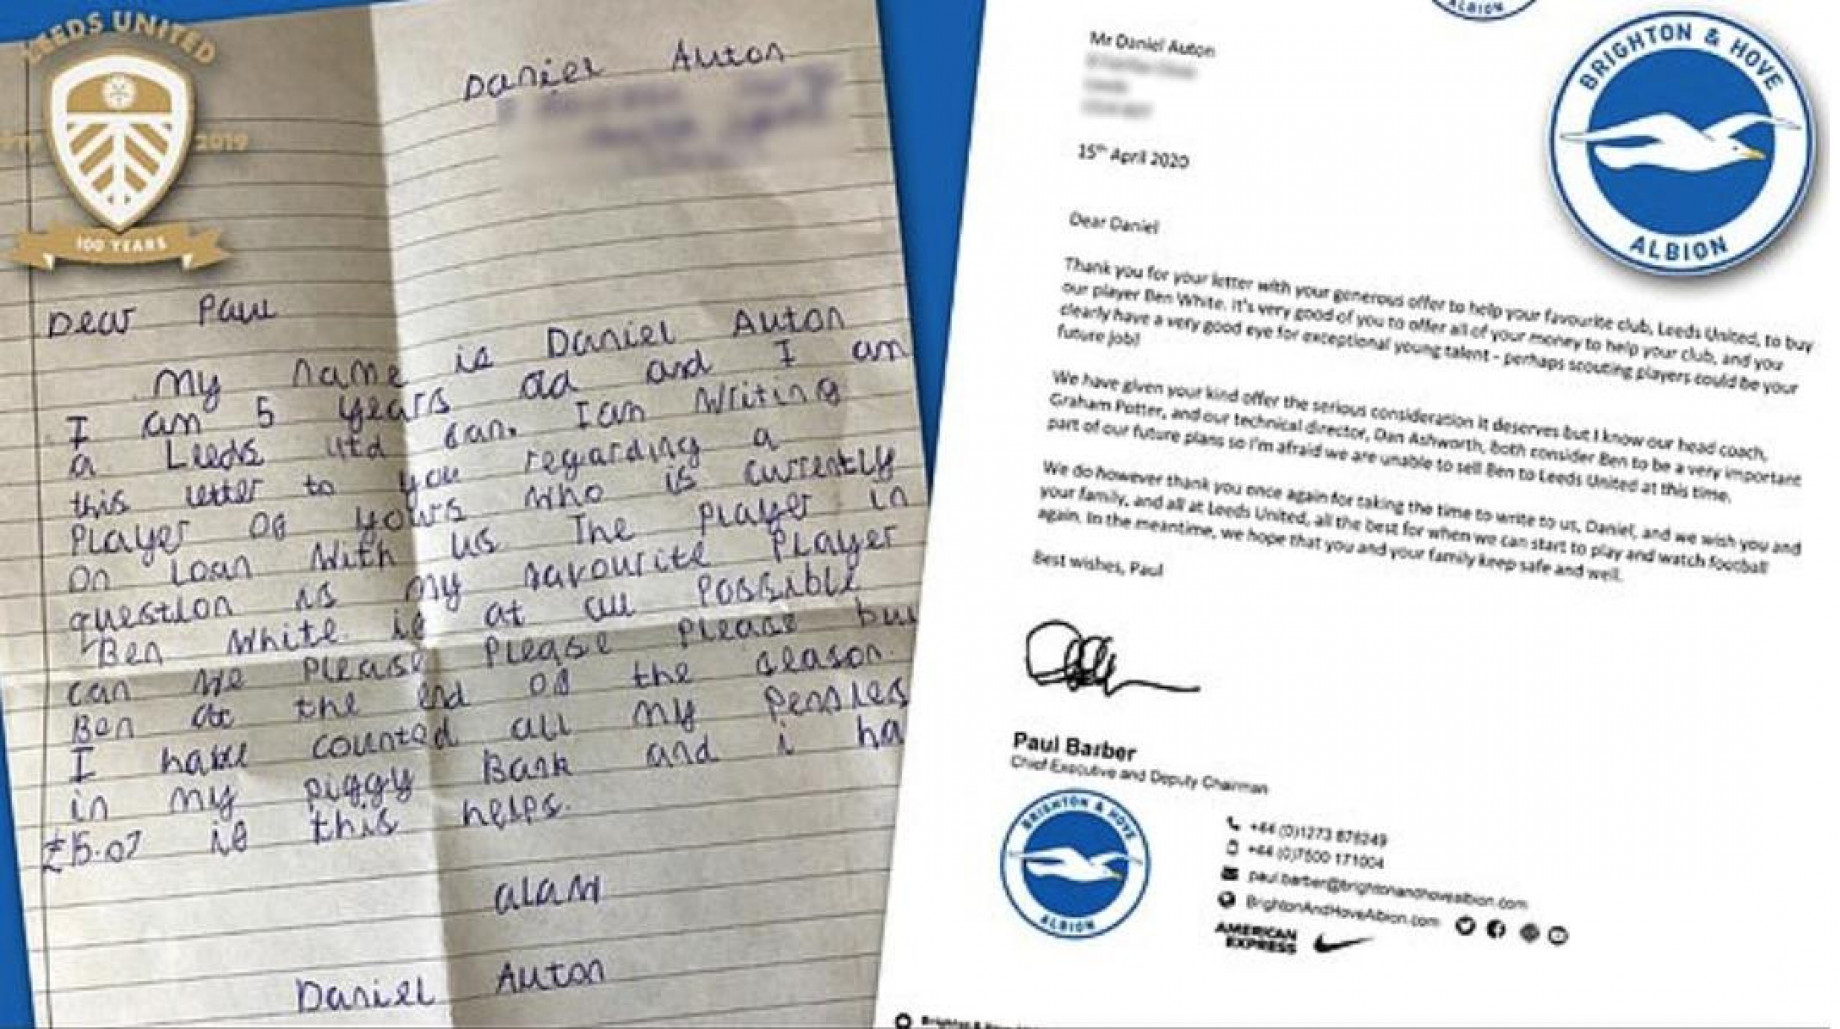 LEEDS UNITED
2019
100 YEARS
Daniel Auton
Dear Paul
My name is Daniel Auton
I am 5 years old and I am
a Leeds utd fan. I am writing
this letter to you regarding a
Player of yours who is currently
on loan with us The player in
question is my favourite player
Ben White. is at all Possible
can we Please Please Please buy
Ben at the end of the season.
I have counted all my Pennies
in my piggy Bank and i ha
£15.07 if this helps.
Daniel Auton
ALBION
BRIGHTON & HOVE
ALBION
Mr Daniel Auton
15th April 2020
Dear Daniel
Thank you for your letter with your generous offer to help your favourite club, Leeds United, to buy
our player Ben White. It's very good of you to offer all of your money to help your club, and you
clearly have a very good eye for exceptional young talent - perhaps scouting players could be your
future job!
We have given your kind offer the serious consideration it deserves but I know our head coach,
Graham Potter, and our technical director, Dan Ashworth, both consider Ben to be a very important
part of our future plans so I'm afraid we are unable to sell Ben to Leeds United at this time.
We do however thank you once again for taking the time to write to us, Daniel, and we wish you and
your family, and all at Leeds United, all the best for when we can start to play and watch football
again. In the meantime, we hope that you and your family keep safe and well.
Best wishes, Paul
Paul Barber
Chief Executive and Deputy Chairman
BRIGHTON & HOVE
ALBION
+44 (0)1273 876249
+44 (0)7500 171004
paul.barber@brightonandhovealbion.com
BrightonAndHoveAlbion.com
AMERICAN
EXPRESS
Brighton & Hove